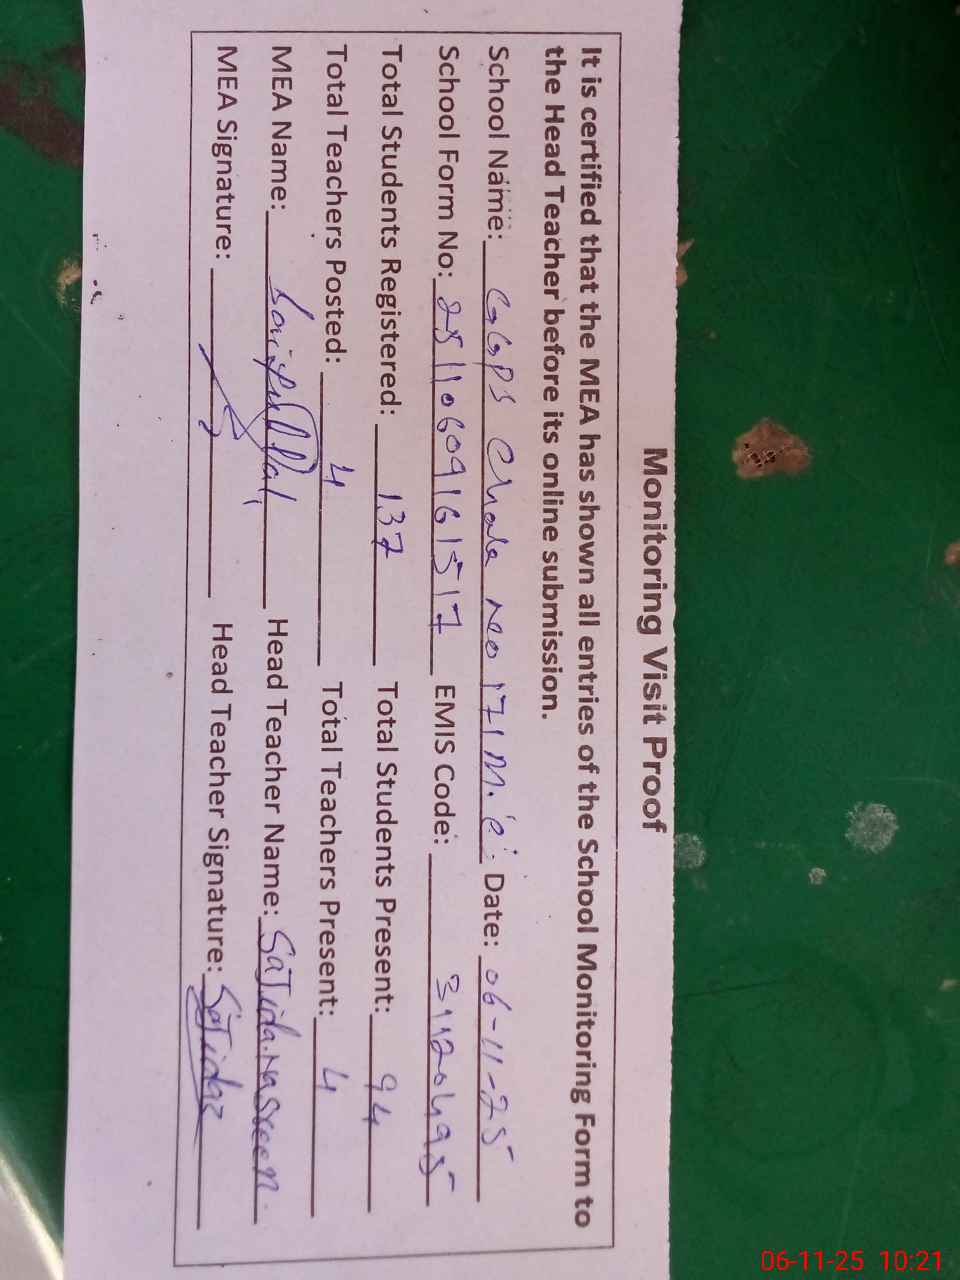 Monitoring Visit Proof
It is certified that the MEA has shown all entries of the School Monitoring Form to
the Head Teacher before its online submission.
School Name: GGPS Chak No 171 M.  Date: 06-11-25
School Form No: 25110609161517 EMIS Code: 31120495
Total Students Registered: 137 Total Students Present: 94
Total Teachers Posted: 4 Total Teachers Present: 4
MEA Name: Head Teacher Name: Sajida Nasreen
MEA Signature: Head Teacher Signature: Sajida
06-11-25 10:21